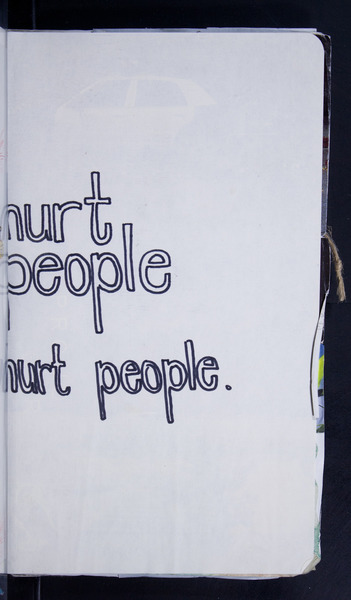 hurt
people
hurt people.